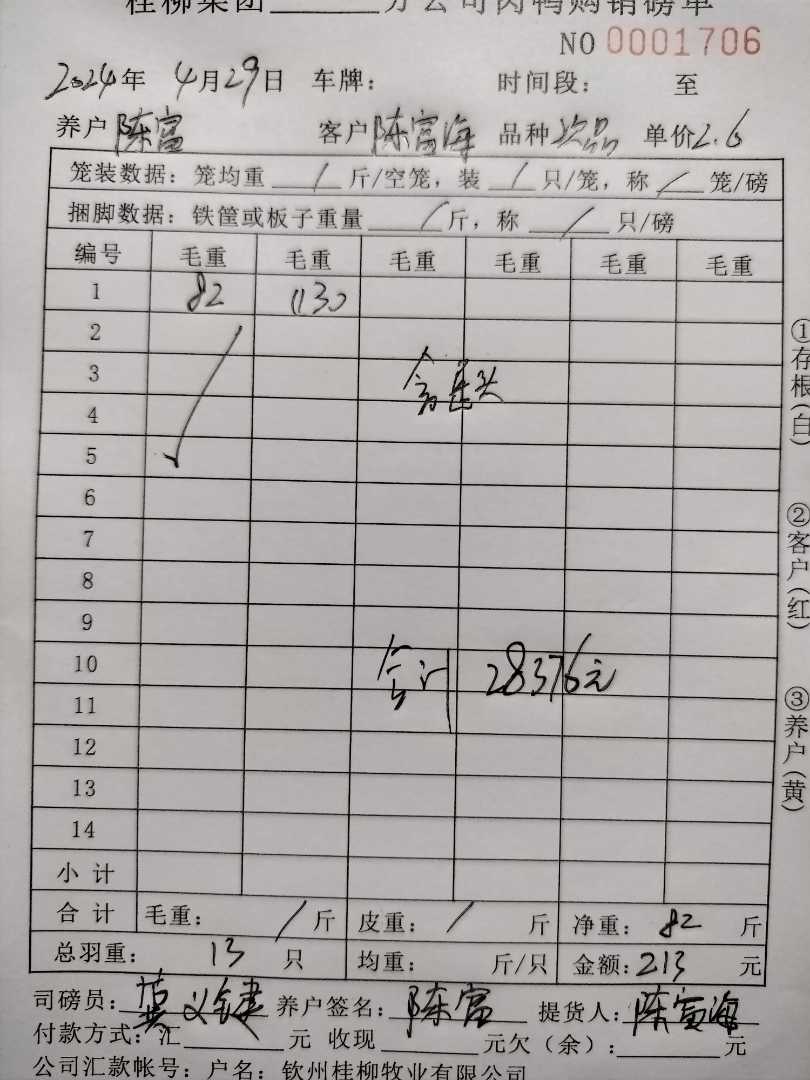 桂柳集团______分公司肉鸭购销磅单
NO 0001706
2024年 4月29日 车牌: 时间段: 至
养户 陈富 客户 陈富海 品种 次品 单价 2.6
笼装数据: 笼均重 / 斤/空笼, 装 / 只/笼, 称 / 笼/磅
捆脚数据: 铁筐或板子重量 / 斤, 称 / 只/磅
编号 毛重 毛重 毛重 毛重 毛重 毛重
1 82 1130
2
3
4
5
6
7
8
9
10 合计 28376元
11
12
13
14
小计
合计 毛重: / 斤 皮重: / 斤 净重: 82 斤
总羽重: 13 只 均重: 斤/只 金额: 213 元
司磅员: 养户签名: 陈富 提货人: 陈富海
付款方式: 汇______元 收现______元欠(余): ______元
公司汇款帐号: 户名: 钦州桂柳牧业有限公司
①存根(白)
②客户(红)
③养户(黄)